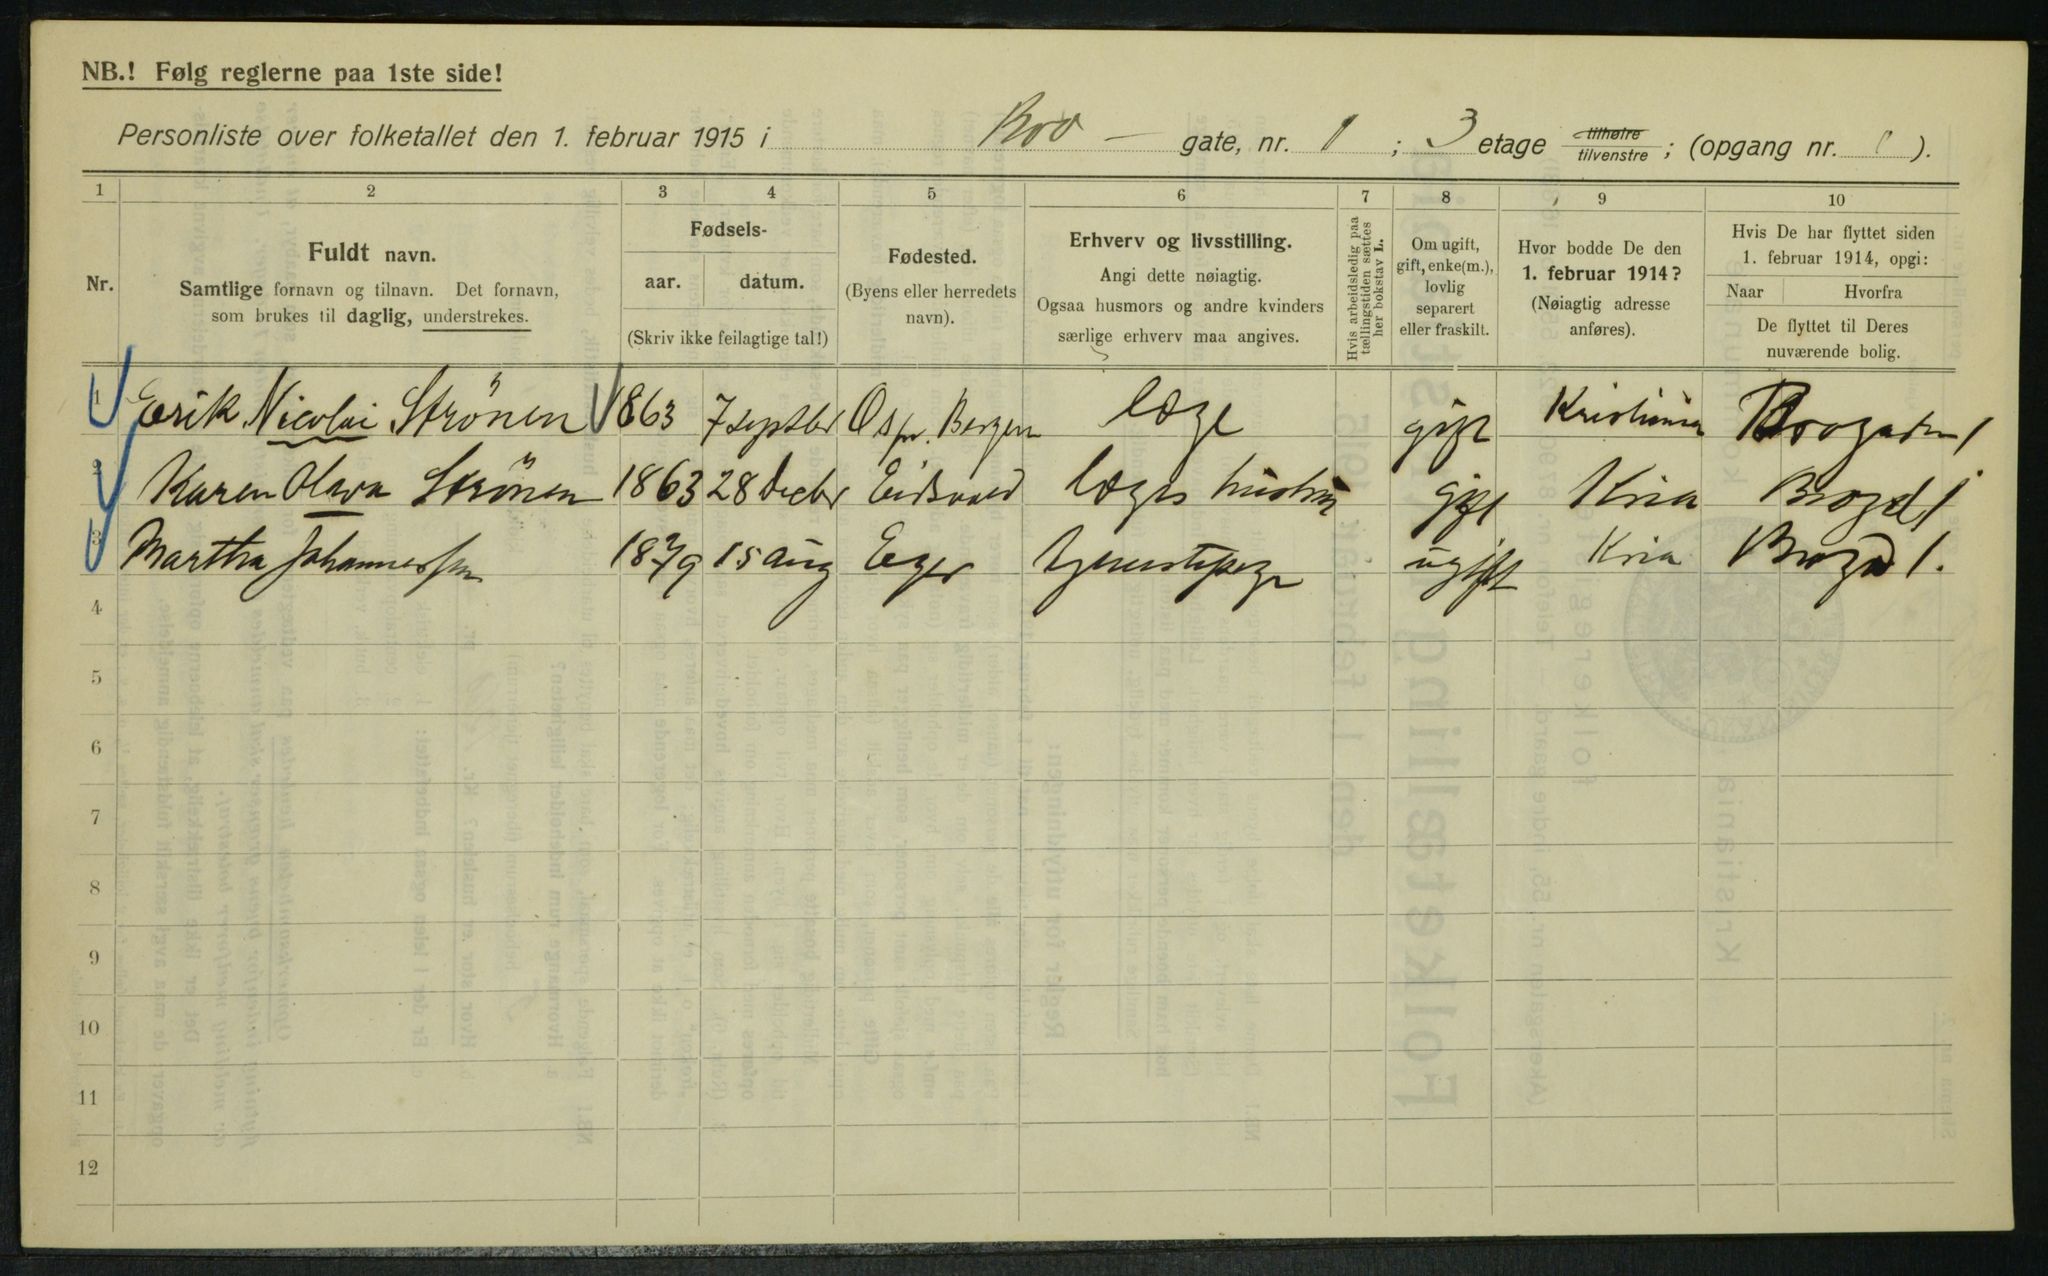 NB.! Følg reglerne paa 1ste side!
Personliste over folketallet den 1. februar 1915 i Bro — gate, nr. 1 ; 3 etage tilhøire tilvenstre ; (opgang nr. 1 ).
1 2 3 4 5 6 7 8 9 10
Nr.
Fuldt navn.
Samtlige fornavn og tilnavn. Det fornavn,
som brukes til daglig, understrekes.
Fødsels-
aar. datum.
(Skriv ikke feilagtige tal!)
Fødested.
(Byens eller herredets
navn).
Erhverv og livsstilling.
Angi dette nøiagtig.
Ogsaa husmors og andre kvinders
særlige erhverv maa angives.
Hvis arbeidsledig paa
tællingstiden sættes
her bokstav L.
Om ugift,
gift, enke(m.),
lovlig
separert
eller fraskilt.
Hvor bodde De den
1. februar 1914?
(Nøiagtig adresse
anføres).
Hvis De har flyttet siden
1. februar 1914, opgi:
Naar Hvorfra
De flyttet til Deres
nuværende bolig.
1 Erik Nicolai Strönen 1863 7 septbr Bergen læge gift Kristiania Brogaten 1
2 Karen Olava Strönen 1863 28 decbr Eidsvold læges hustru gift Kria Brogd 1
3 Martha Johannessen 1879 15 aug Eger tjenestepige ugift Kria Brogd 1.
4
5
6
7
8
9
10
11
12